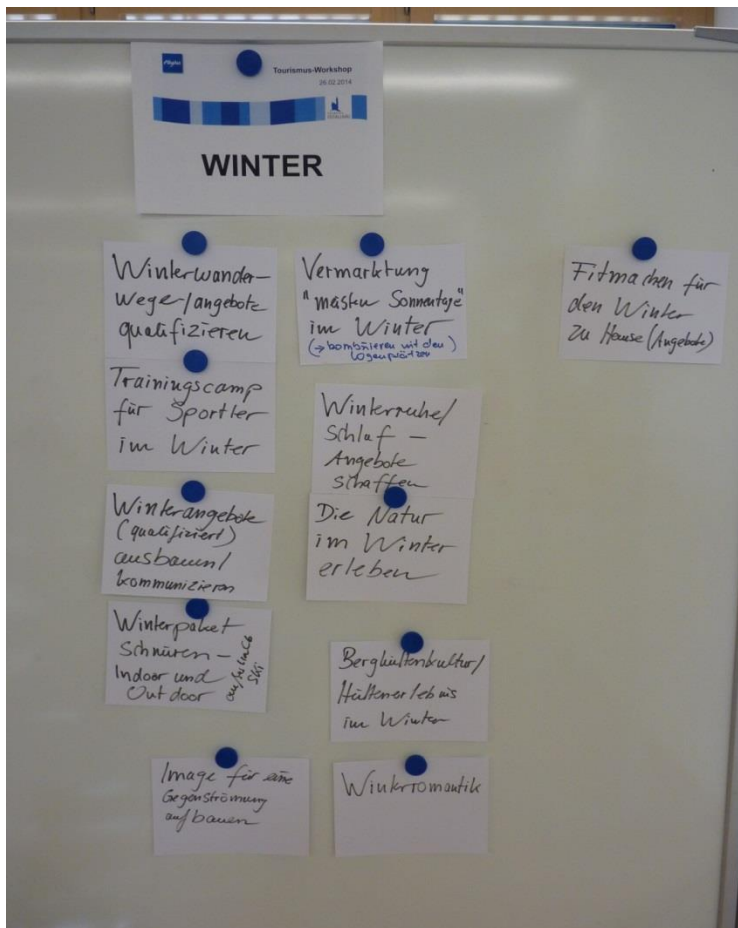 Tourismus-Workshop
26.02.2014
WINTER
Winterwander-
wege/angebote
qualifizieren
Trainingscamp
für Sportler
im Winter
Winterangebote
(qualifiziert)
ausbauen/
kommunizieren
Winterpaket
Schnüren -
Indoor und
Outdoor
Ski
Image für eine
Gegenströmung
aufbauen
Vermarktung
"meisten Sonnentage"
im Winter
(→ kombinieren mit den
Logenplätzen)
Winterruhe/
Schlaf -
Angebote
schaffen
Die Natur
im Winter
erleben
Berghüttenkultur/
Hüttenerlebnis
im Winter
Winterromantik
Fitmachen für
den Winter
zu Hause (Angebote)